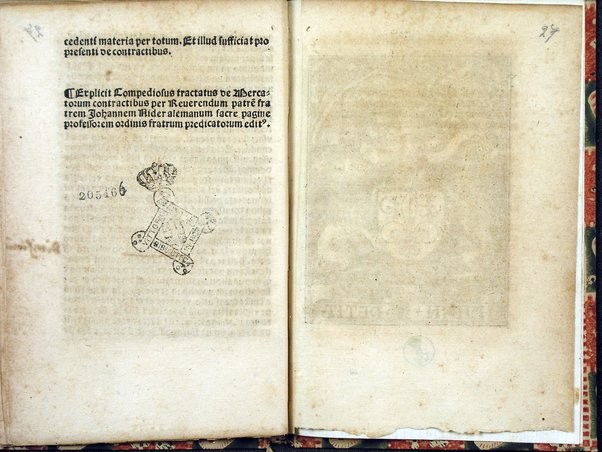 cedenti materia per totum. Et illud sufficiat pro
presenti de contractibus.
¶Explicit Compediosus tractatus de Merca-
torum contractibus per Reuerendum patrē fra
trem Johannem Nider alemanum sacre pagine
professorem ordinis fratrum predicatorum editꝰ.
205466
27